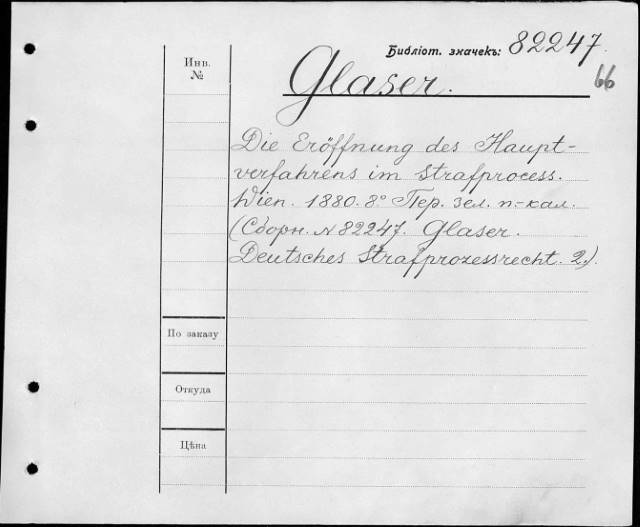 Библіот. значекъ: 82247.
66
Инв.
№
Glaser.
Die Eröffnung des Haupt-
verfahrens im Strafprocess.
Wien. 1880. 8° Пер. зел. п.-кал.
(Сборн. № 82247. Glaser.
Deutsches Strafprozessrecht. 2.).
По заказу
Откуда
Цѣна